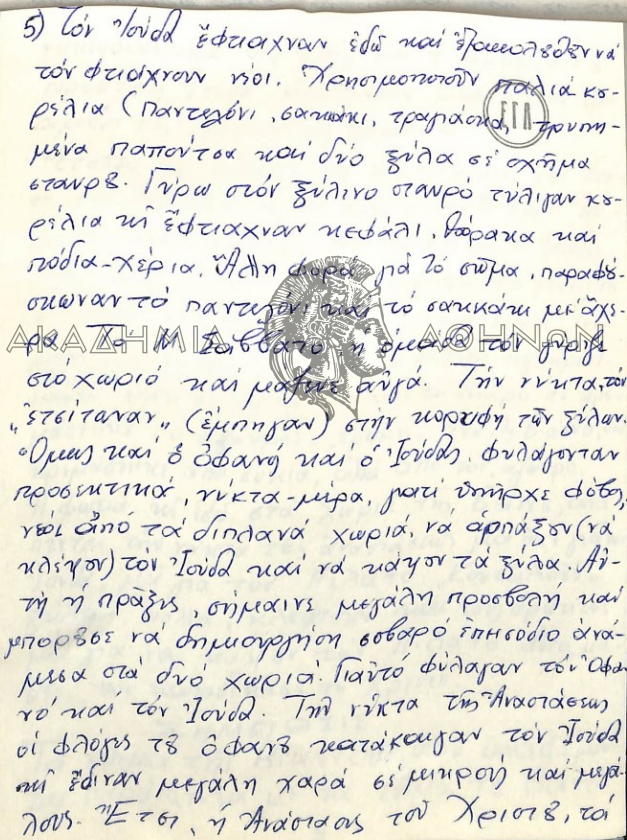 5) Τόν Ἰούδα ἔφτιαχναν ἐδῶ καί ἐξακολουθοῦν νά
τόν φτιάχνουν νέοι. Χρησιμοποιοῦν παλιά κου-
ρέλια (παντελόνι, σακκάκι, τραγιάσκα, τρυπη-
μένα παπούτσα καί δυό ξύλα σέ σχῆμα
σταυροῦ. Γύρω στόν ξύλινο σταυρό τύλιγαν κου-
ρέλια κι ἔφτιαχναν κεφάλι, θώρακα καί
πόδια-χέρια. Ἄλλη φορά γιά τό σῶμα, παραφού-
σκωναν τό παντελόνι καί τό σακκάκι μέ ἄχυ-
ρα. Τό Μ. Σάββατο, ἡ ὁμάδα τόν γύριζε
στό χωριό καί μάζευε αὐγά. Τήν νύκτα, τόν
„ἐτσίταναν„ (ἔμπηγαν) στήν κορυφή τῶν ξύλων.
Ὅμως καί ὁ ὀφανός καί ὁ Ἰούδας, φυλάγονταν
προσεκτικά, νύκτα-μέρα, γιατί ὑπῆρχε φόβος,
νέοι ἀπό τά διπλανά χωριά, νά ἁρπάξουν (νά
κλέψουν) τόν Ἰούδα καί νά κάψουν τά ξύλα. Αὐ-
τή ἡ πράξις, σήμαινε μεγάλη προσβολή καί
μποροῦσε νά δημιουργήση σοβαρό ἐπεισόδιο ἀνά-
μεσα στά δυό χωριά. Γιαὐτό φύλαγαν τόν Ὀφα-
νό καί τόν Ἰούδα. Τήν νύκτα τῆς Ἀναστάσεως
οἱ φλόγες τοῦ ὀφανοῦ κατάκαιγαν τόν Ἰούδα
κι ἔδιναν μεγάλη χαρά σέ μικρούς καί μεγά-
λους. Ἔτσι, ἡ Ἀνάστασις τοῦ Χριστοῦ, τά
ΑΚΑΔΗΜΙΑ ΑΘΗΝΩΝ